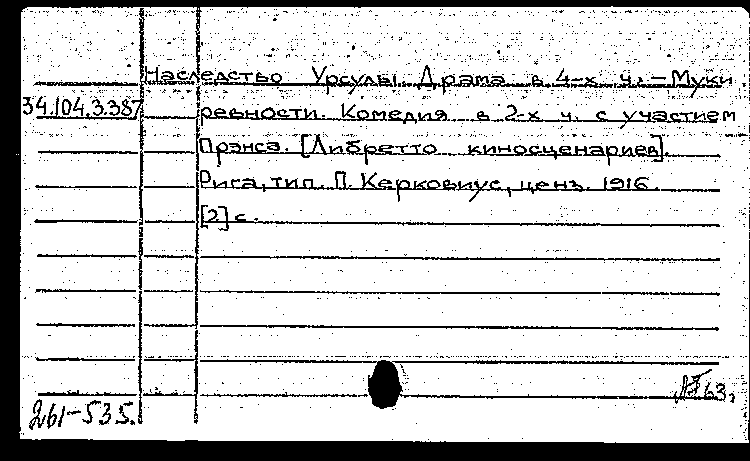 Наследство Урсулы. Драма в 4-х ч. – Муки
34.104.3.387 ревности. Комедия в 2-х ч. с участием
Прэнса. [Либретто киносценариев].
Рига, тип. П. Керковиус, ценз. 1916.
[2] с.
63.
261-535.